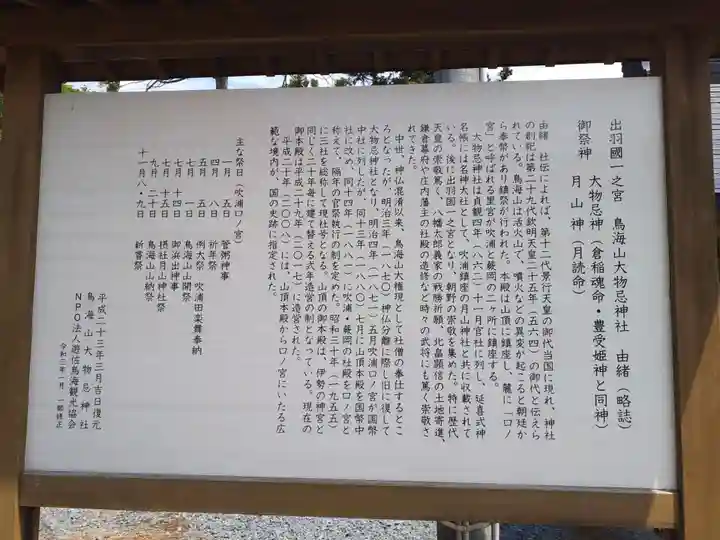 出羽國一之宮　鳥海山大物忌神社　由緒（略誌）
御祭神　大物忌神（倉稲魂命・豊受姫神と同神）
月山神（月読命）
由緒　社伝によれば、第十二代景行天皇の御代当国に現れ、神社
の創祀は第二十九代欽明天皇二十五年（五六四）の御代と伝えら
れている。鳥海山は活火山で、噴火などの異変が起こると朝廷か
ら奉幣があり鎮祭が行われた。本殿は山頂に鎮座し、麓に「口ノ
宮」と呼ばれる里宮が吹浦と蕨岡の二ヶ所に鎮座する。
大物忌神社は貞観四年（八六二）十一月官社に列し、延喜式神
名帳には名神大社として、吹浦鎮座の月山神社と共に収載されて
いる。後に出羽国一之宮となり、朝野の崇敬を集めた。特に歴代
天皇の崇敬篤く、八幡太郎義家の戦勝祈願、北畠顕信の土地寄進、
鎌倉幕府や庄内藩主の社殿の造修など時々の武将にも篤く崇敬さ
れてきた。
中世、神仏混淆以来、鳥海山大権現として社僧の奉仕するとこ
ろとなったが、明治三年（一八七〇）神仏分離に際し旧に復して
大物忌神社となり、明治四年（一八七一）五月吹浦口ノ宮が国幣
中社に列したが、同十三年（一八八〇）七月に山頂本殿を国幣中
社に改め、同十四年（一八八一）に吹浦・蕨岡の社殿を口ノ宮と
称えて、隔年の官祭執行の制を定めた。昭和三十年（一九五五）
に三社を総称して現社号となる。山頂の御本殿は、伊勢の神宮と
同じく二十年毎に建て替える式年造営の制となっている。現在の
御本殿は平成二十九年（二〇一七）に造営された。
平成二十年（二〇〇八）には、山頂本殿から口ノ宮にいたる広
範な境内が、国の史跡に指定された。
主な祭日（吹浦口ノ宮）
一月　五日　管粥神事
四月　八日　祈年祭
五月　五日　例大祭　吹浦田楽舞奉納
七月　一日　鳥海山山開祭
七月　十四日　御浜出神事
七月　十五日　摂社月山神社祭
九月　二十日　鳥海山山納祭
十一月　八、九日　新嘗祭
平成二十三年三月吉日復元
鳥海山大物忌神社
NPO法人遊佐鳥海観光協会
令和二年一月　一部修正